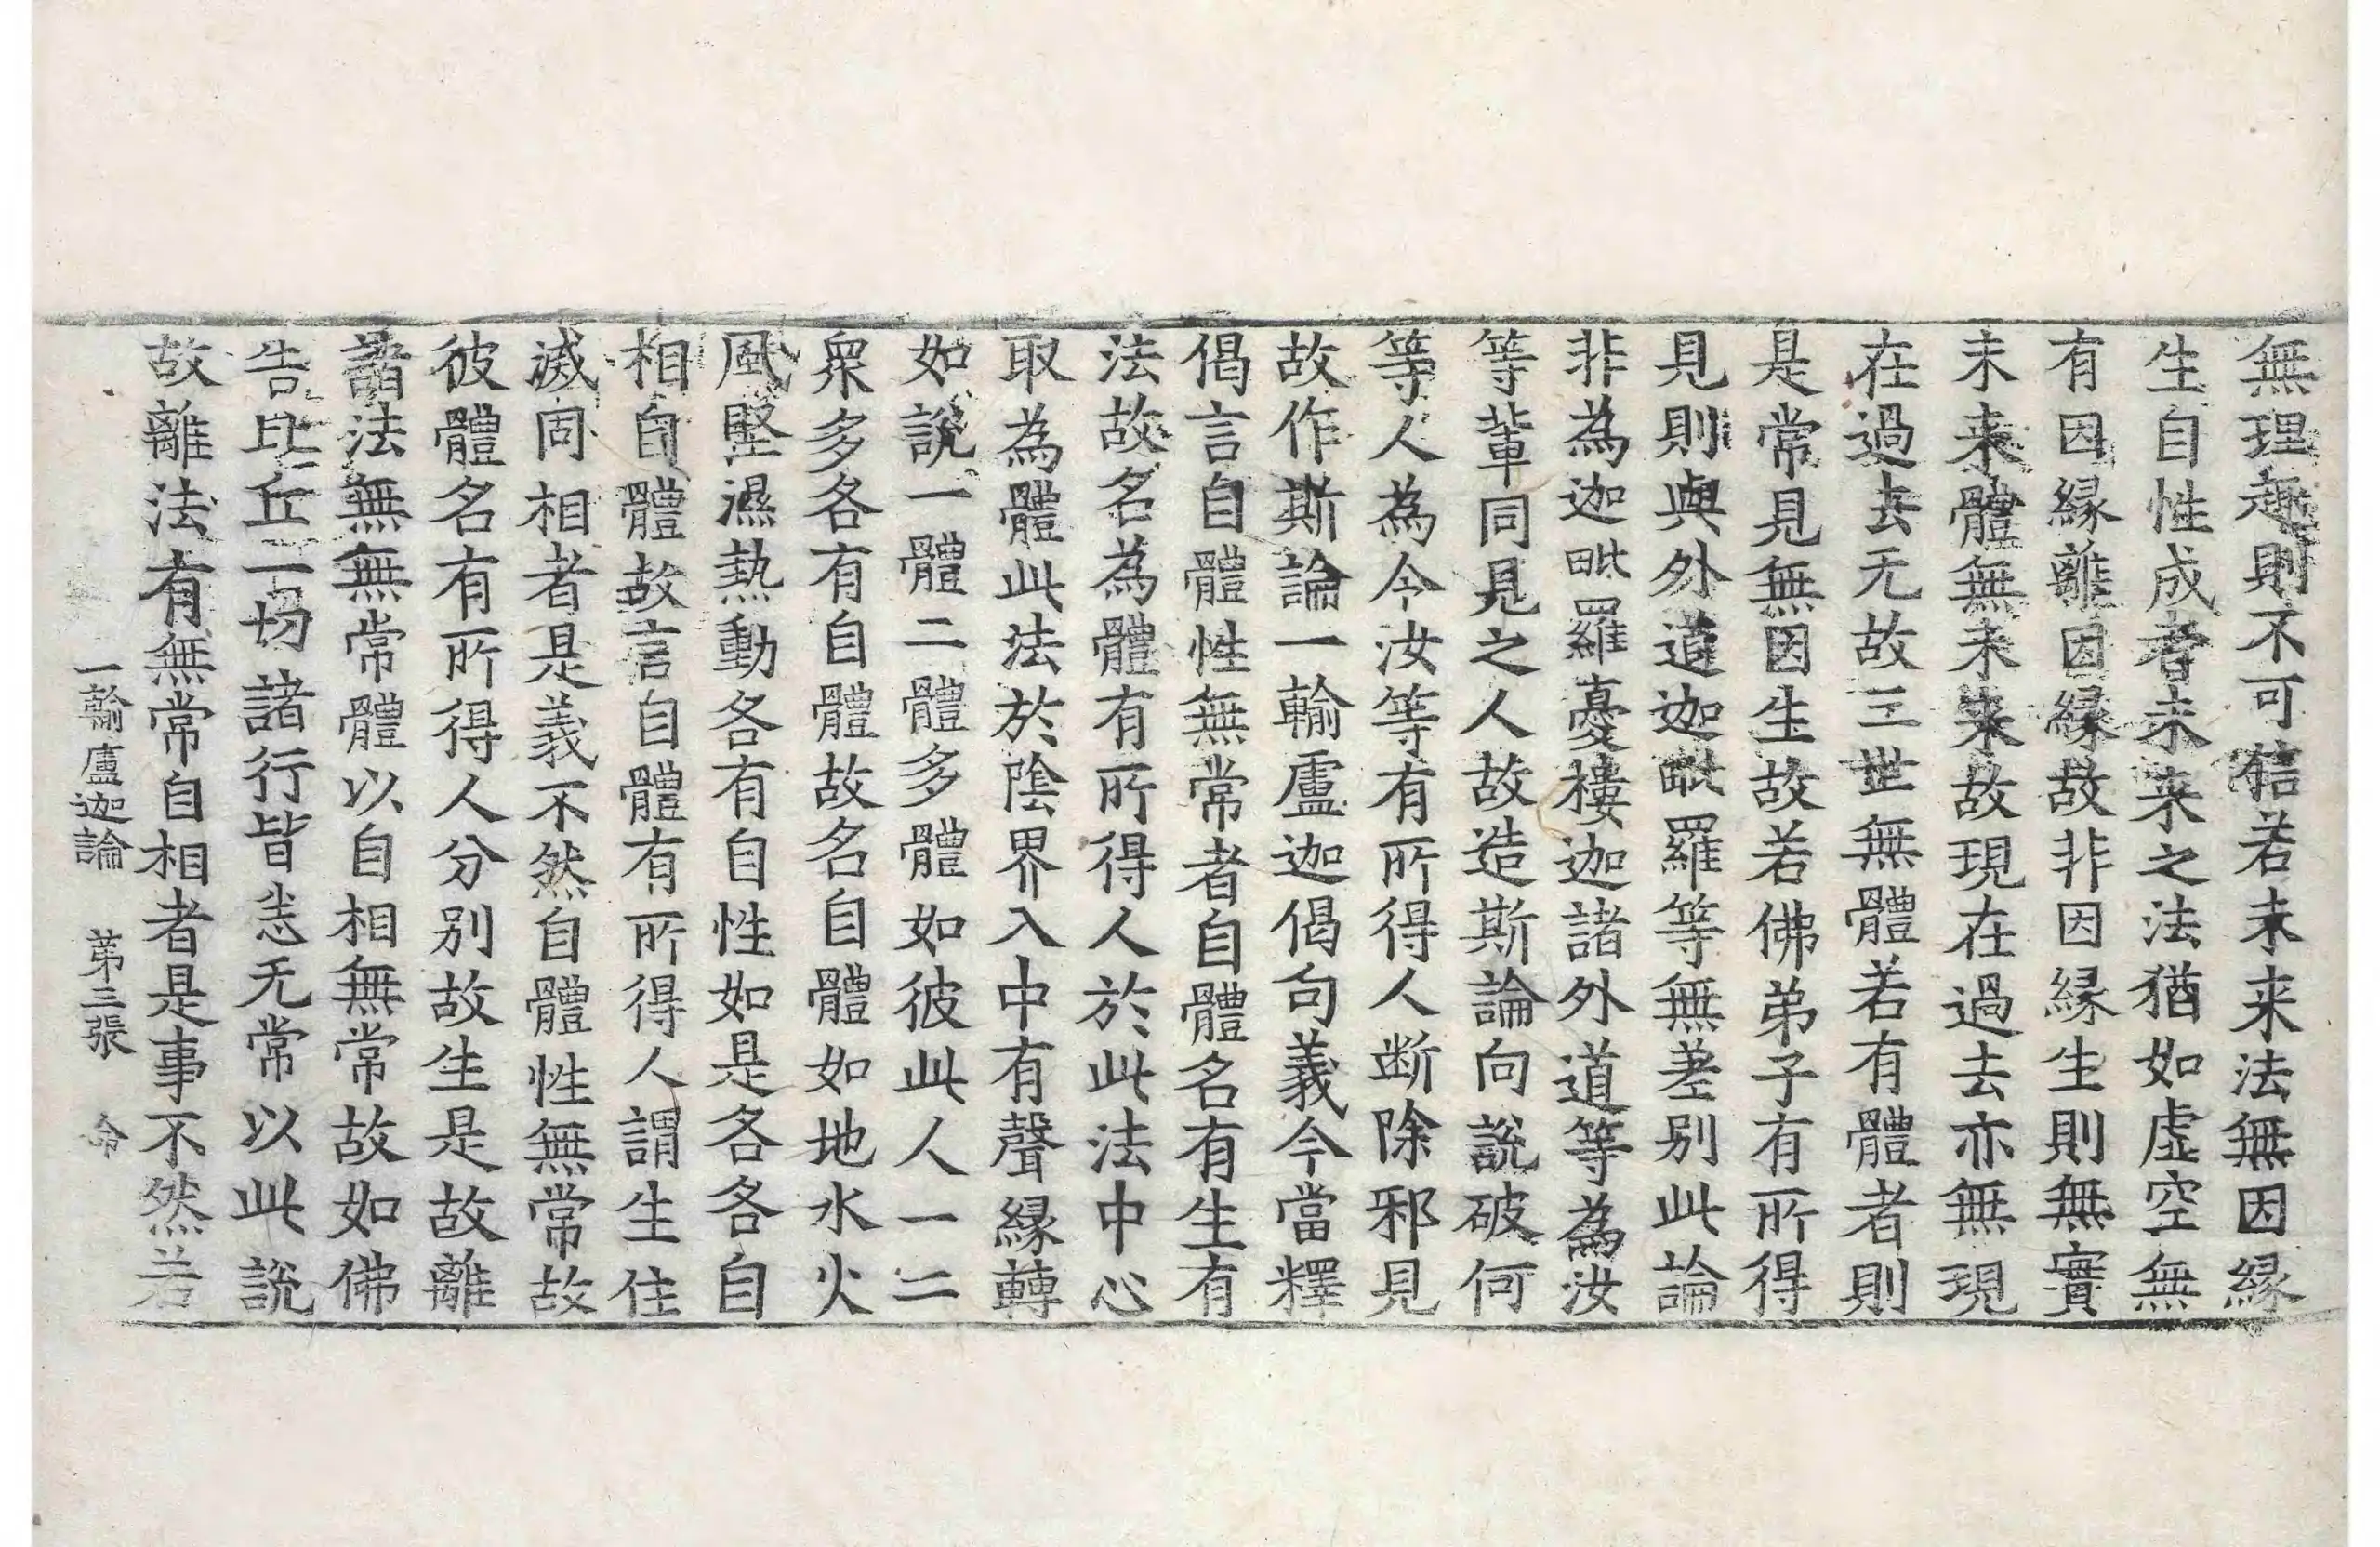 無理趣則不可信若未来法無因緣
生自性成者未来之法猶如虛空無
有因緣離因緣故非因緣生則無實
未来體無未来故現在過去亦無現
在過去无故三世無體若有體者則
是常見無因生故若佛弟子有所得
見則與外道迦毗羅等無差別此論
非為迦毗羅憂樓迦諸外道等為汝
等輩同見之人故造斯論向說破何
等人為今汝等有所得人断除邪見
故作斯論一輸盧迦偈句義今當釋
偈言自體性無常者自體名有生有
法故名為體有所得人於此法中心
取為體此法於陰界入中有聲緣轉
如說一體二體多體如彼此人一二
衆多各有自體故名自體如地水火
風堅濕熱動各有自性如是各各自
相自體故言自體有所得人謂生住
滅同相者是義不然自體性無常故
彼體名有所得人分別故生是故離
諸法無無常體以自相無常故如佛
告比丘一切諸行皆悉无常以此說
故離法有無常自相者是事不然若
一輸盧迦論 苐三張 命